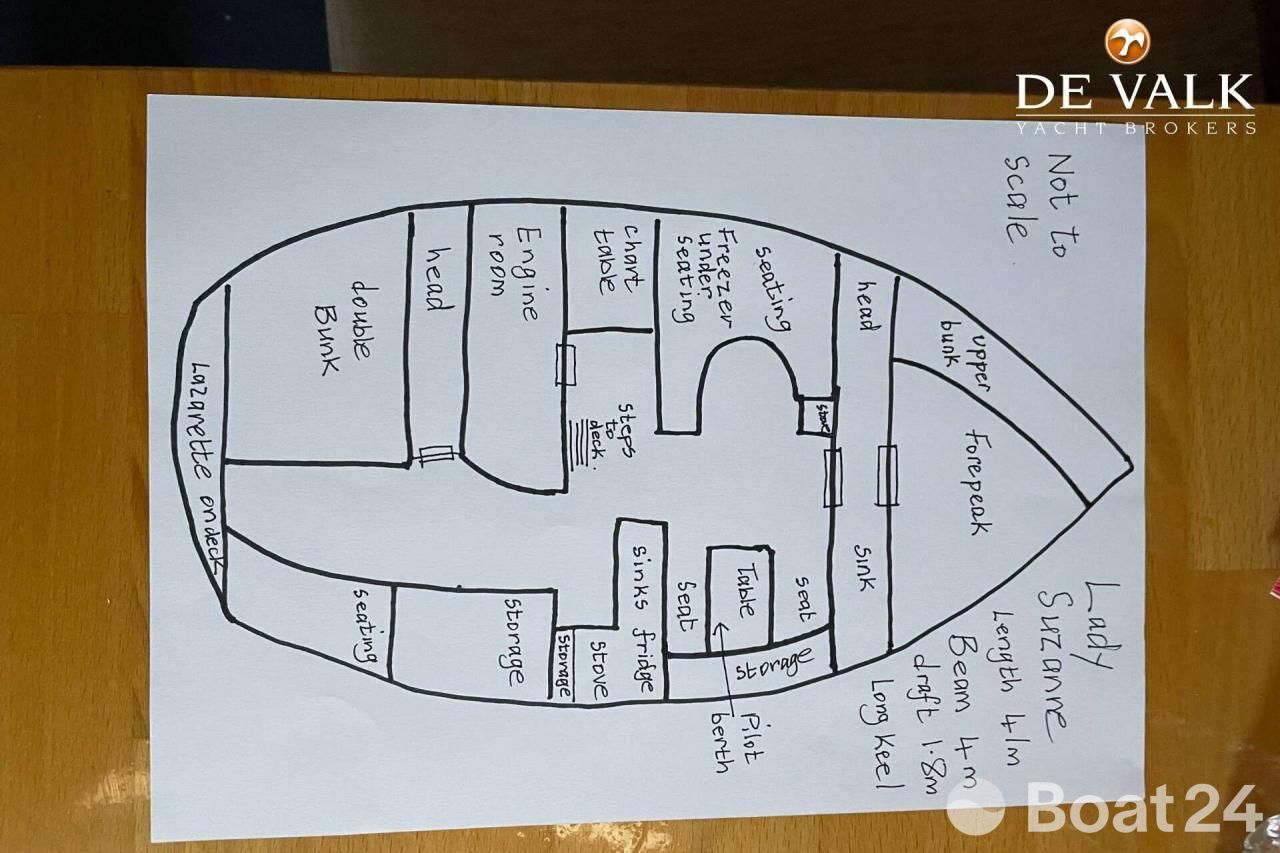 DE VALK
YACHT BROKERS
Not to
Scale
Lady
Suzanne
Length 41m
Beam 4m
draft 1.8m
Long Keel
upper
bunk
Forepeak
head
sink
seating
Freezer
under
seating
store
seat
Table
seat
storage
Pilot
berth
chart
table
steps
to
deck.
sinks fridge
stove
storage
Engine
room
storage
head
double
Bunk
seating
Lazarette on deck
Boat24